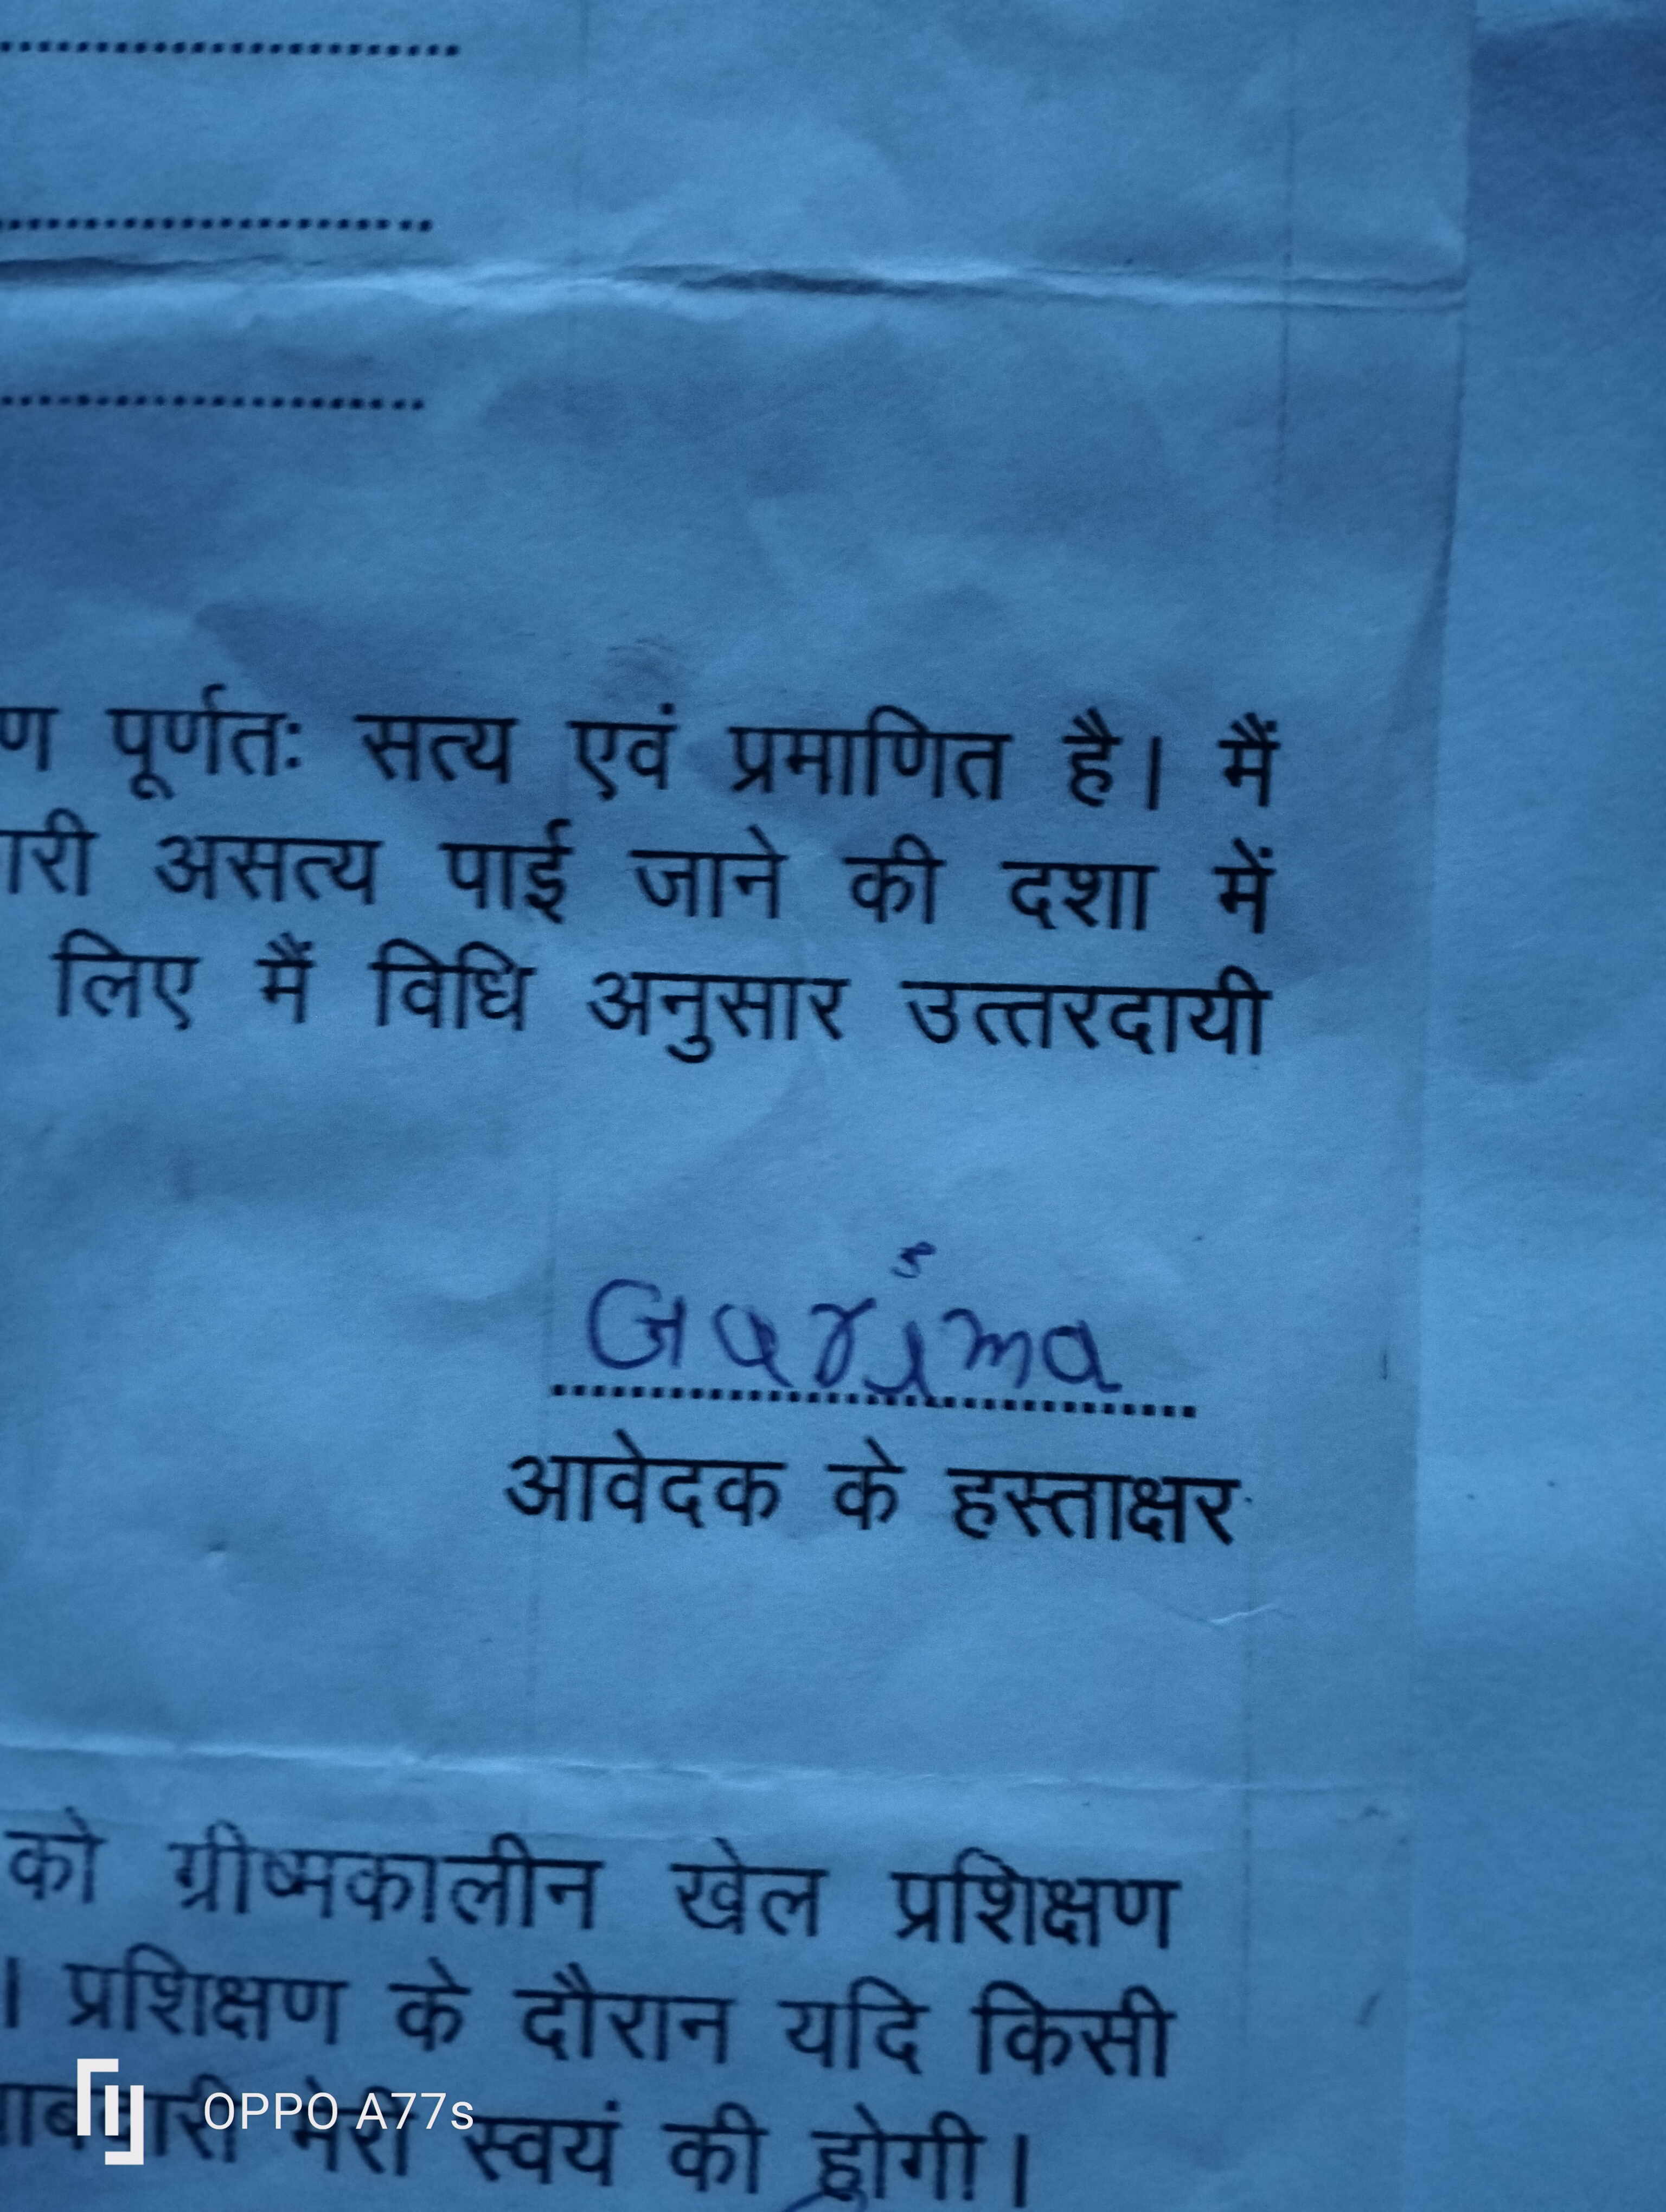 पूर्णतः सत्य एवं प्रमाणित है। मैं
असत्य पाई जाने की दशा में
लिए मैं विधि अनुसार उत्तरदायी
Garima
आवेदक के हस्ताक्षर
को ग्रीष्मकालीन खेल प्रशिक्षण
। प्रशिक्षण के दौरान यदि किसी
मेरी स्वयं की होगी।
OPPO A77s